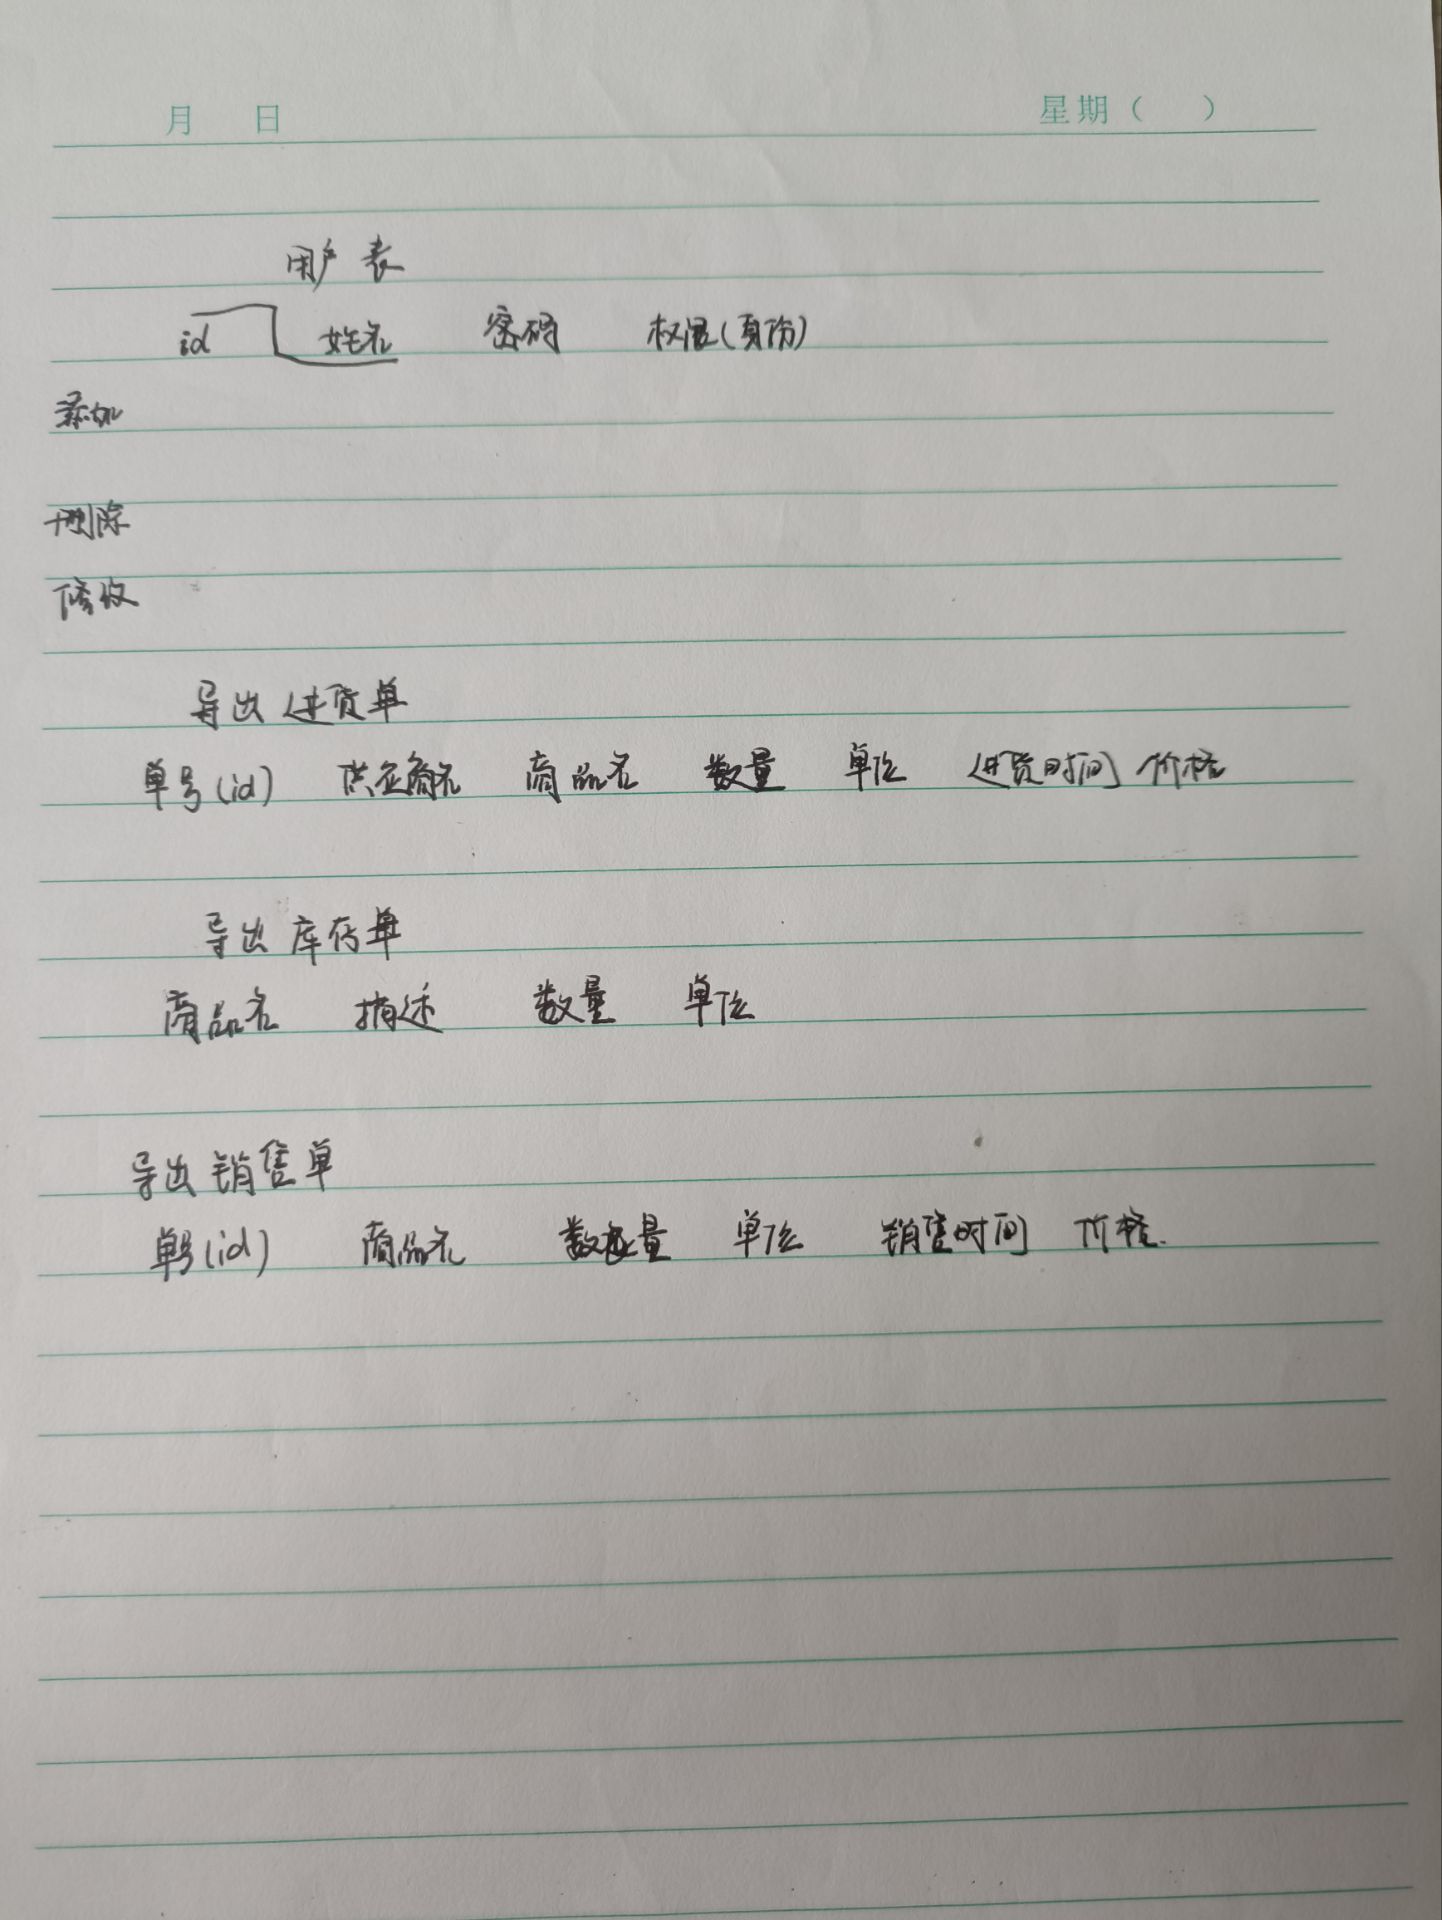 月 日 星期( )
用户表
id 姓名 密码 权限(身份)
添加
删除
修改
导出进货单
单号(id) 供应商名 商品名 数量 单位 进货时间 价格
导出库存单
商品名 描述 数量 单位
导出销售单
单号(id) 商品名 数量 单位 销售时间 价格.